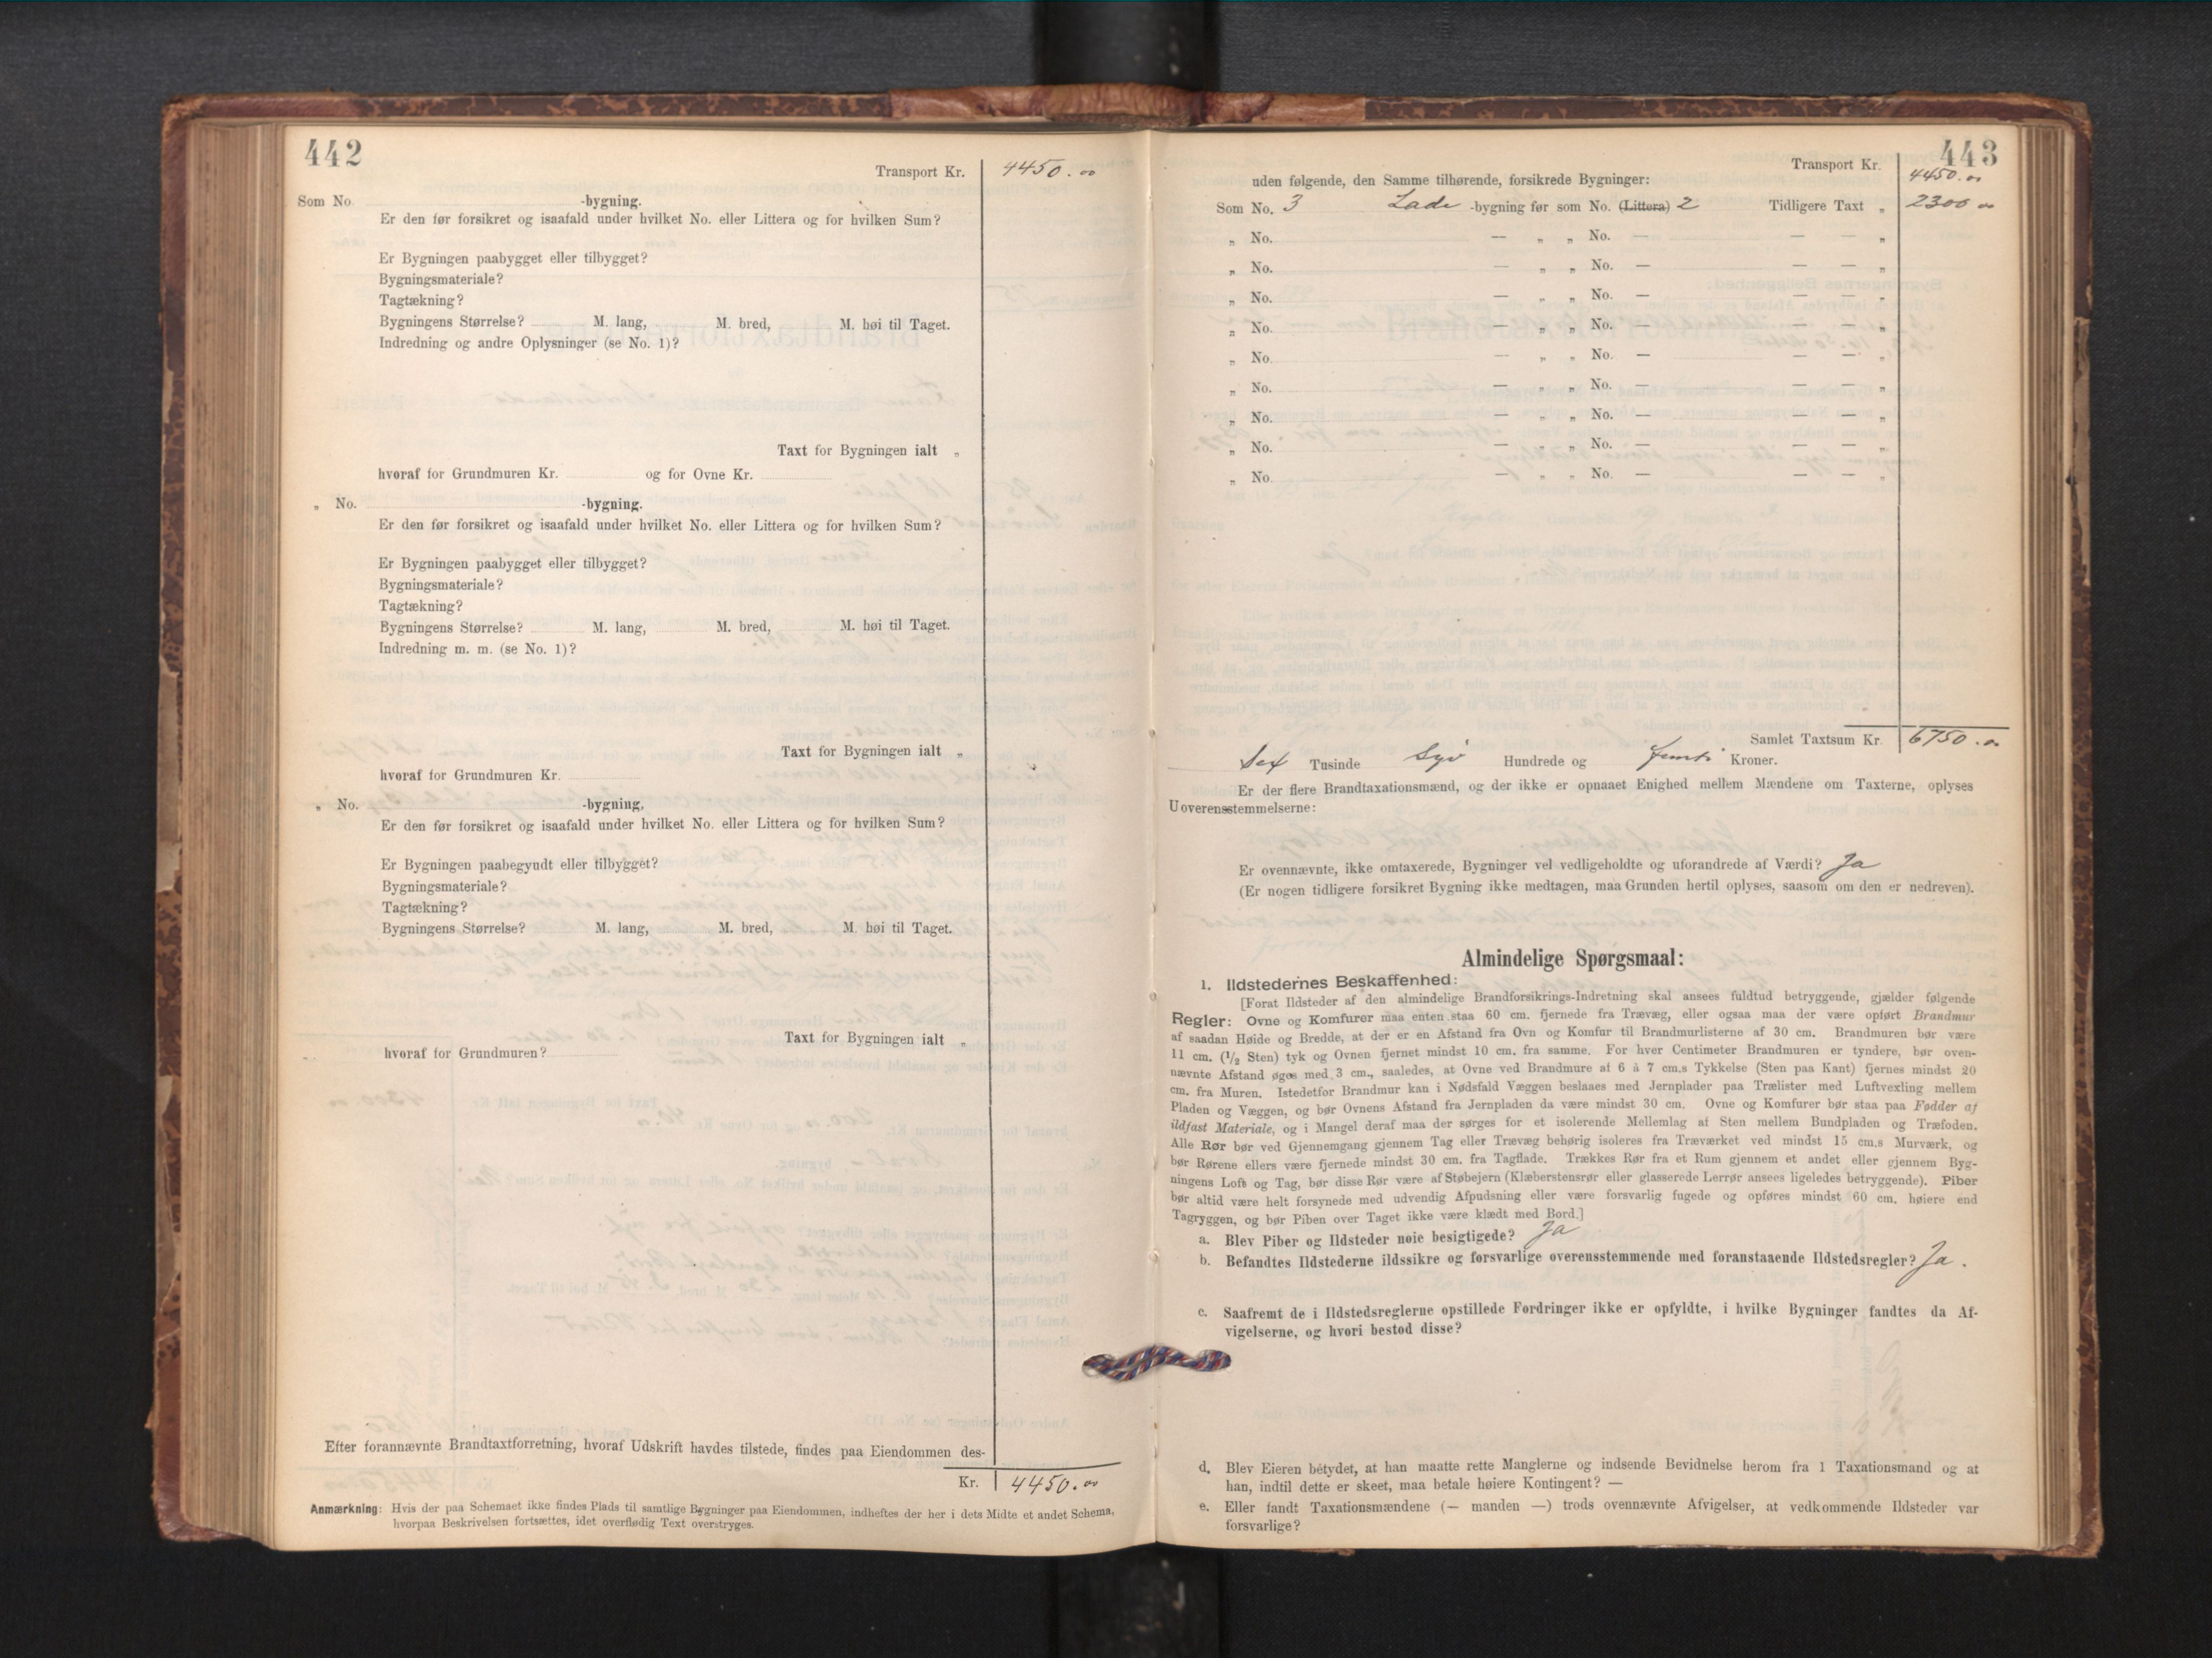 442
Transport Kr. 4450.00
Som No. -bygning.
Er den før forsikret og isaafald under hvilket No. eller Littera og for hvilken Sum?
Er Bygningen paabygget eller tilbygget?
Bygningsmateriale?
Tagtækning?
Bygningens Størrelse? M. lang, M. bred, M. høi til Taget.
Indredning og andre Oplysninger (se No. 1)?
Taxt for Bygningen ialt „
hvoraf for Grundmuren Kr. og for Ovne Kr.
„ No. -bygning.
Er den før forsikret og isaafald under hvilket No. eller Littera og for hvilken Sum?
Er Bygningen paabygget eller tilbygget?
Bygningsmateriale?
Tagtækning?
Bygningens Størrelse? M. lang, M. bred, M. høi til Taget.
Indredning m. m. (se No. 1)?
Taxt for Bygningen ialt „
hvoraf for Grundmuren Kr.
„ No. -bygning,
Er den før forsikret og isaafald under hvilket No. eller Littera og for hvilken Sum?
Er Bygningen paabegyndt eller tilbygget?
Bygningsmateriale?
Tagtækning?
Bygningens Størrelse? M. lang, M. bred, M. høi til Taget.
Taxt for Bygningen ialt „
hvoraf for Grundmuren?
Efter forannævnte Brandtaxtforretning, hvoraf Udskrift havdes tilstede, findes paa Eiendommen des-
Kr. 4450.00
Anmærkning: Hvis der paa Schemaet ikke findes Plads til samtlige Bygninger paa Eiendommen, indheftes der her i dets Midte et andet Schema,
hvorpaa Beskrivelsen fortsættes, idet overflødig Text overstryges.
443
Transport Kr. 4450.00
uden følgende, den Samme tilhørende, forsikrede Bygninger:
Som No. 3 Lade -bygning før som No. (Littera) 2 Tidligere Taxt „ 2300 00
„ No. — „ „ No. — — — „
„ No. — „ „ No. — — — „
„ No. — „ „ No. — — — „
„ No. — „ „ No. — — — „
„ No. — „ „ No. — — — „
„ No. — „ „ No. — — — „
„ No. — „ „ No. — — — „
„ No. — „ „ No. — — — „
„ No. — „ „ No. — — — „
Samlet Taxtsum Kr. 6750.00
Sex Tusinde Syv Hundrede og Femti Kroner.
Er der flere Brandtaxationsmænd, og der ikke er opnaaet Enighed mellem Mændene om Taxterne, oplyses
Uoverensstemmelserne:
Er ovennævnte, ikke omtaxerede, Bygninger vel vedligeholdte og uforandrede af Værdi? Ja
(Er nogen tidligere forsikret Bygning ikke medtagen, maa Grunden hertil oplyses, saasom om den er nedreven).
Almindelige Spørgsmaal:
1. Ildstedernes Beskaffenhed:
[Forat Ildsteder af den almindelige Brandforsikrings-Indretning skal ansees fuldtud betryggende, gjælder følgende
Regler: Ovne og Komfurer maa enten staa 60 cm. fjernede fra Trævæg, eller ogsaa maa der være opført Brandmur
af saadan Høide og Bredde, at der er en Afstand fra Ovn og Komfur til Brandmurlisterne af 30 cm. Brandmuren bør være
11 cm. (½ Sten) tyk og Ovnen fjernet mindst 10 cm. fra samme. For hver Centimeter Brandmuren er tyndere, bør oven-
nævnte Afstand øges med 3 cm., saaledes, at Ovne ved Brandmure af 6 à 7 cm.s Tykkelse (Sten paa Kant) fjernes mindst 20
cm. fra Muren. Istedetfor Brandmur kan i Nødsfald Væggen beslaaes med Jernplader paa Trælister med Luftvexling mellem
Pladen og Væggen, og bør Ovnens Afstand fra Jernpladen da være mindst 30 cm. Ovne og Komfurer bør staa paa Fødder af
ildfast Materiale, og i Mangel deraf maa der sørges for et isolerende Mellemlag af Sten mellem Bundpladen og Træfoden.
Alle Rør bør ved Gjennemgang gjennem Tag eller Trævæg behørig isoleres fra Træværket ved mindst 15 cm.s Murværk, og
bør Rørene ellers være fjernede mindst 30 cm. fra Tagflade. Trækkes Rør fra et Rum gjennem et andet eller gjennem Byg-
ningens Loft og Tag, bør disse Rør være af Støbejern (Klæberstensrør eller glasserede Lerrør ansees ligeledes betryggende). Piber
bør altid være helt forsynede med udvendig Afpudsning eller være forsvarlig fugede og opføres mindst 60 cm. høiere end
Tagryggen, og bør Piben over Taget ikke være klædt med Bord.]
a. Blev Piber og Ildsteder nøie besigtigede? Ja
b. Befandtes Ildstederne ildssikre og forsvarlige overensstemmende med foranstaaende Ildstedsregler? Ja.
c. Saafremt de i Ildstedsreglerne opstillede Fordringer ikke er opfyldte, i hvilke Bygninger fandtes da Af-
vigelserne, og hvori bestod disse?
d. Blev Eieren betydet, at han maatte rette Manglerne og indsende Bevidnelse herom fra 1 Taxationsmand og at
han, indtil dette er skeet, maa betale høiere Kontingent? —
e. Eller fandt Taxationsmændene (— manden —) trods ovennævnte Afvigelser, at vedkommende Ildsteder var
forsvarlige?